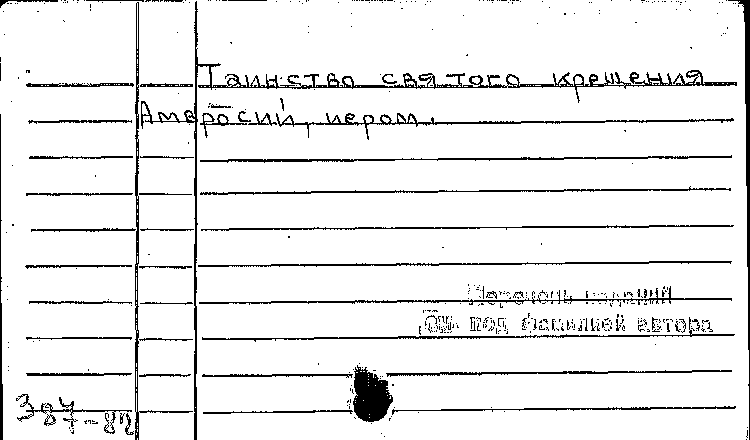 Таинство святого крещения
Амвросий, иером.
Перечень изданий
см. под фамилией автора
387-82